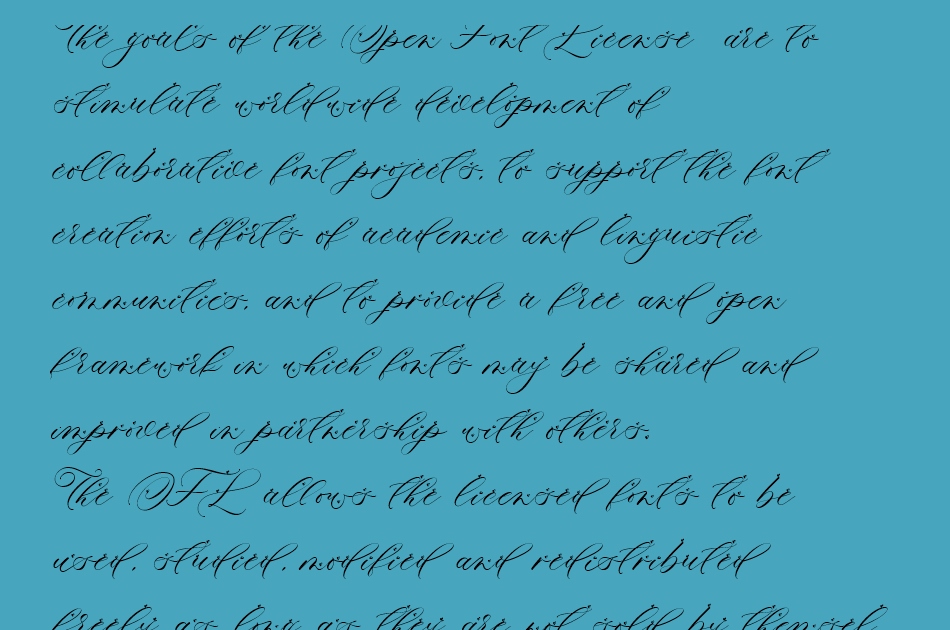 The goals of the Open Font License are to
stimulate worldwide development of
collaborative font projects, to support the font
creation efforts of academic and linguistic
communities, and to provide a free and open
framework in which fonts may be shared and
improved in partnership with others.
The OFL allows the licensed fonts to be
used, studied, modified and redistributed
freely as long as they are not sold by themsel